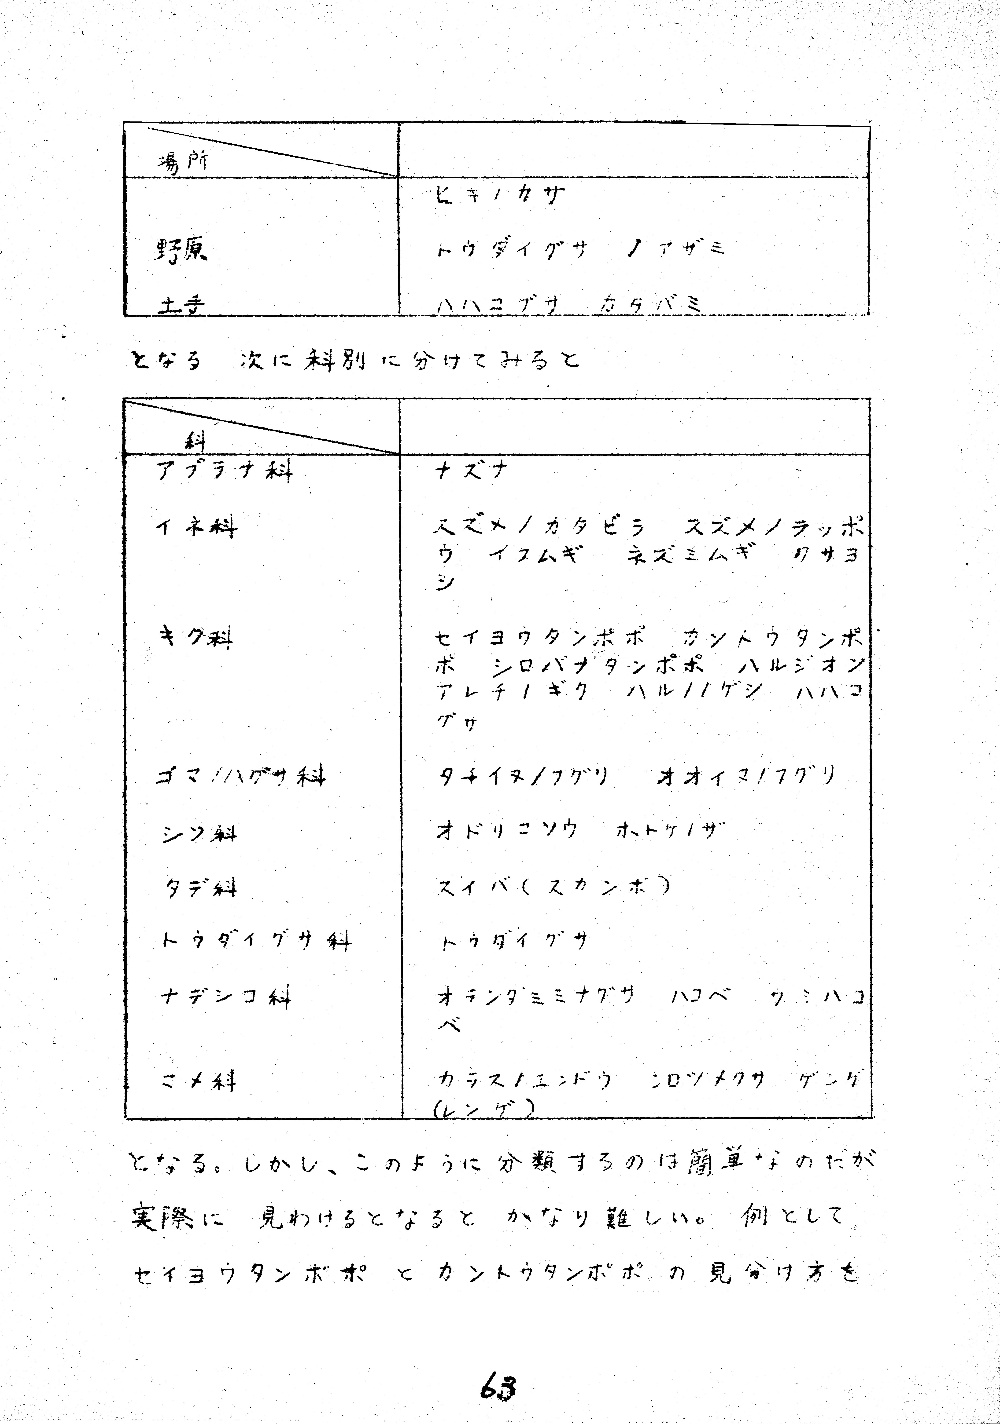 場所
ヒキノカサ
野原 トウダイグサ ノアザミ
土手 ハハコグサ カタバミ
となる 次に科別に分けてみると
科
アブラナ科 ナズナ
イネ科 スズメノカタビラ スズメノテッポ
ウ イヌムギ ネズミムギ クサヨ
シ
キク科 セイヨウタンポポ カントウタンポ
ポ シロバナタンポポ ハルジオン
アレチノギク ハルノノゲシ ハハコ
グサ
ゴマノハグサ科 タチイヌノフグリ オオイヌノフグリ
シソ科 オドリコソウ ホトケノザ
タデ科 スイバ(スカンポ)
トウダイグサ科 トウダイグサ
ナデシコ科 オランダミミナグサ ハコベ ウシハコ
ベ
マメ科 カラスノエンドウ シロツメクサ ゲンゲ
(レンゲ)
となる。しかし、このように分類するのは簡単なのだが
実際に 見わけるとなると かなり難しい。 例として
セイヨウタンポポ と カントウタンポポ の 見分け方を
63